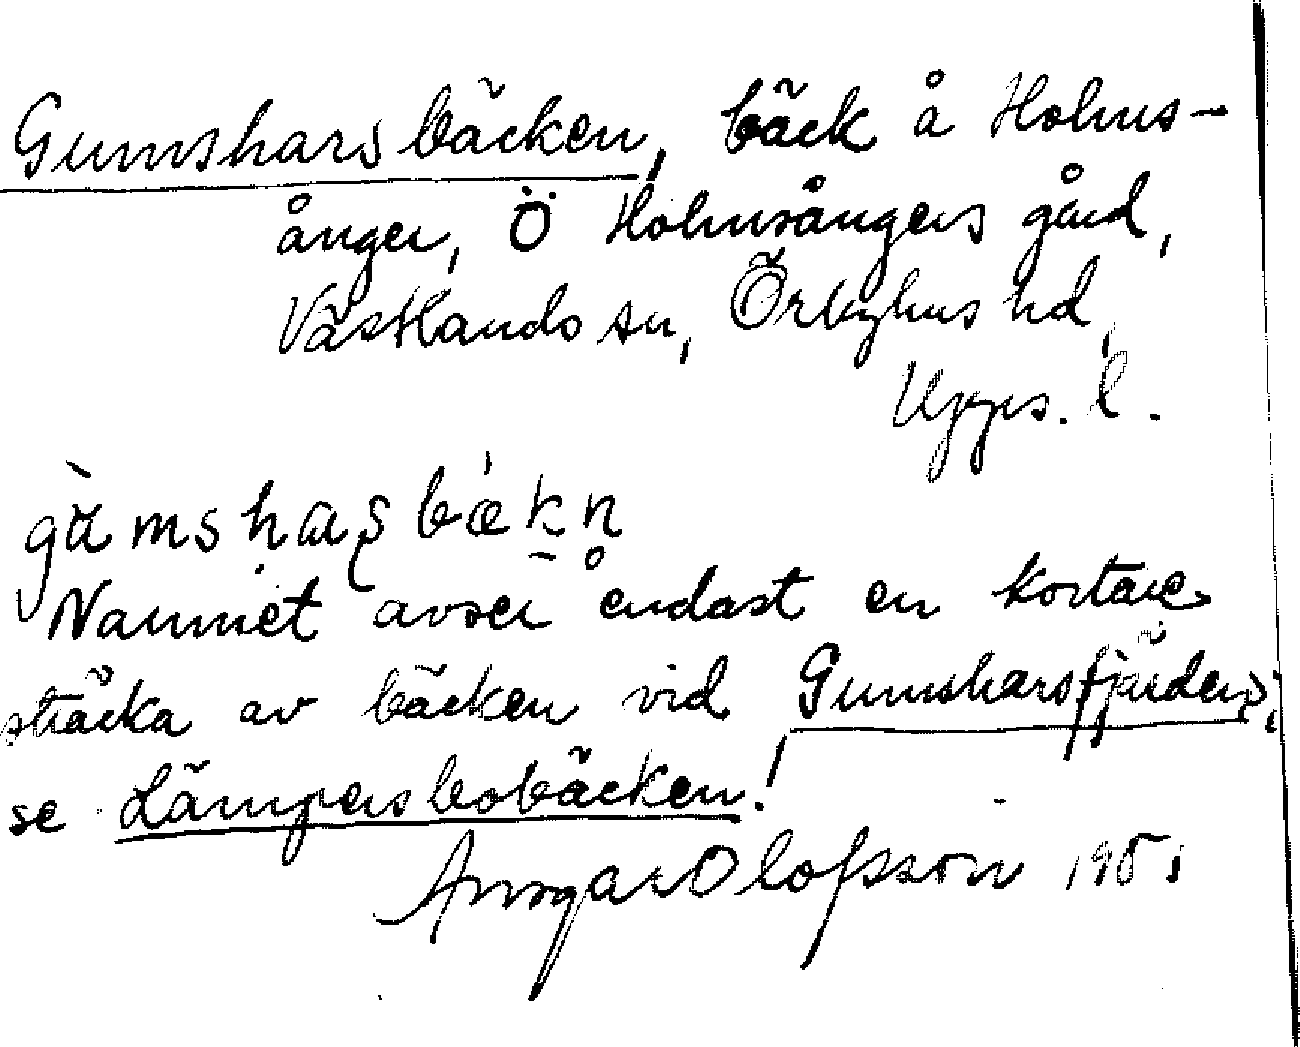 Gumsharsbäcken, bäck å Holms-
ånger, Ö Holmsångers gård,
Västlands sn, Örbyhus hd,
Upps. l.
Namnet avser endast en kortare
sträcka av bäcken vid Gumsharsfjärden,
se Lämpersbobäcken!
Ansgar Olofsson 1951